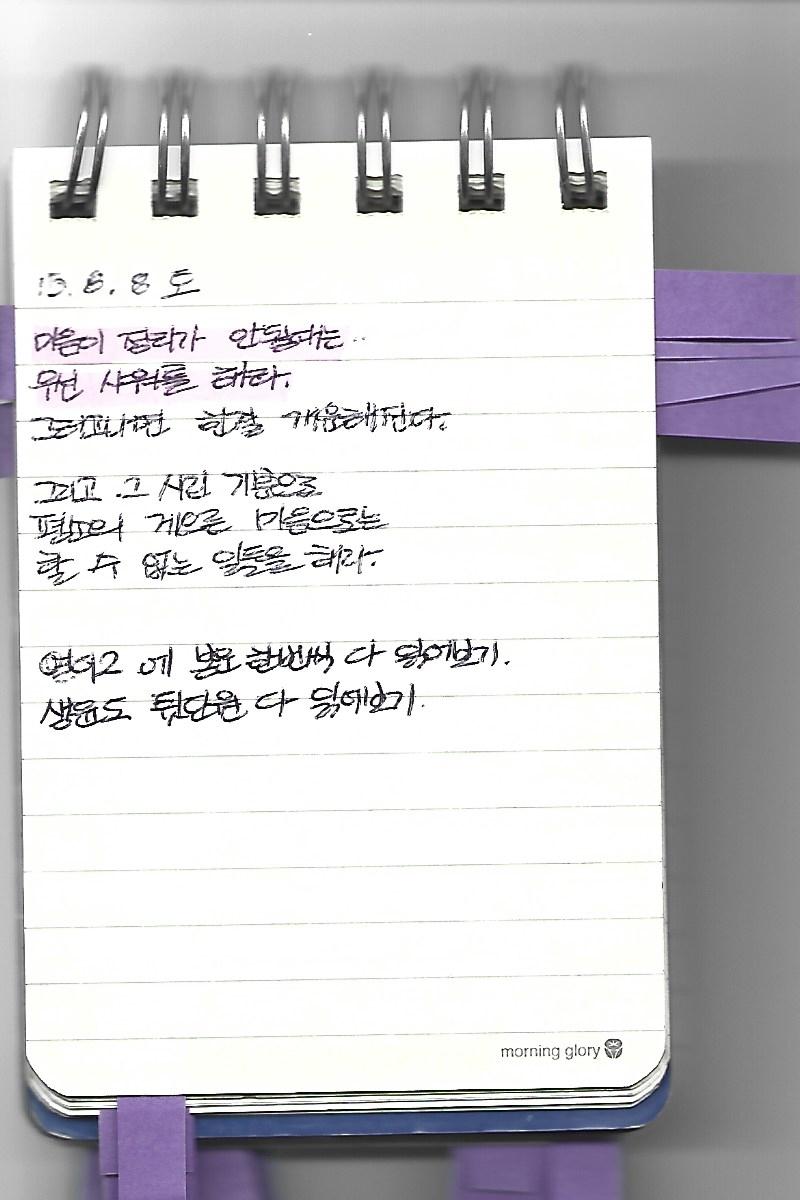 15. 8. 8 토
마음이 정리가 안될때는..
우선 샤워를 해라.
그러고나면 한결 개운해진다.
그리고 그 시린 기분으로
평소의 게으른 마음으로는
할 수 없는 일들을 해라.
영어2 에 본문 한번씩 다 읽어보기.
생윤도 뒷단원 다 읽어보기.
morning glory